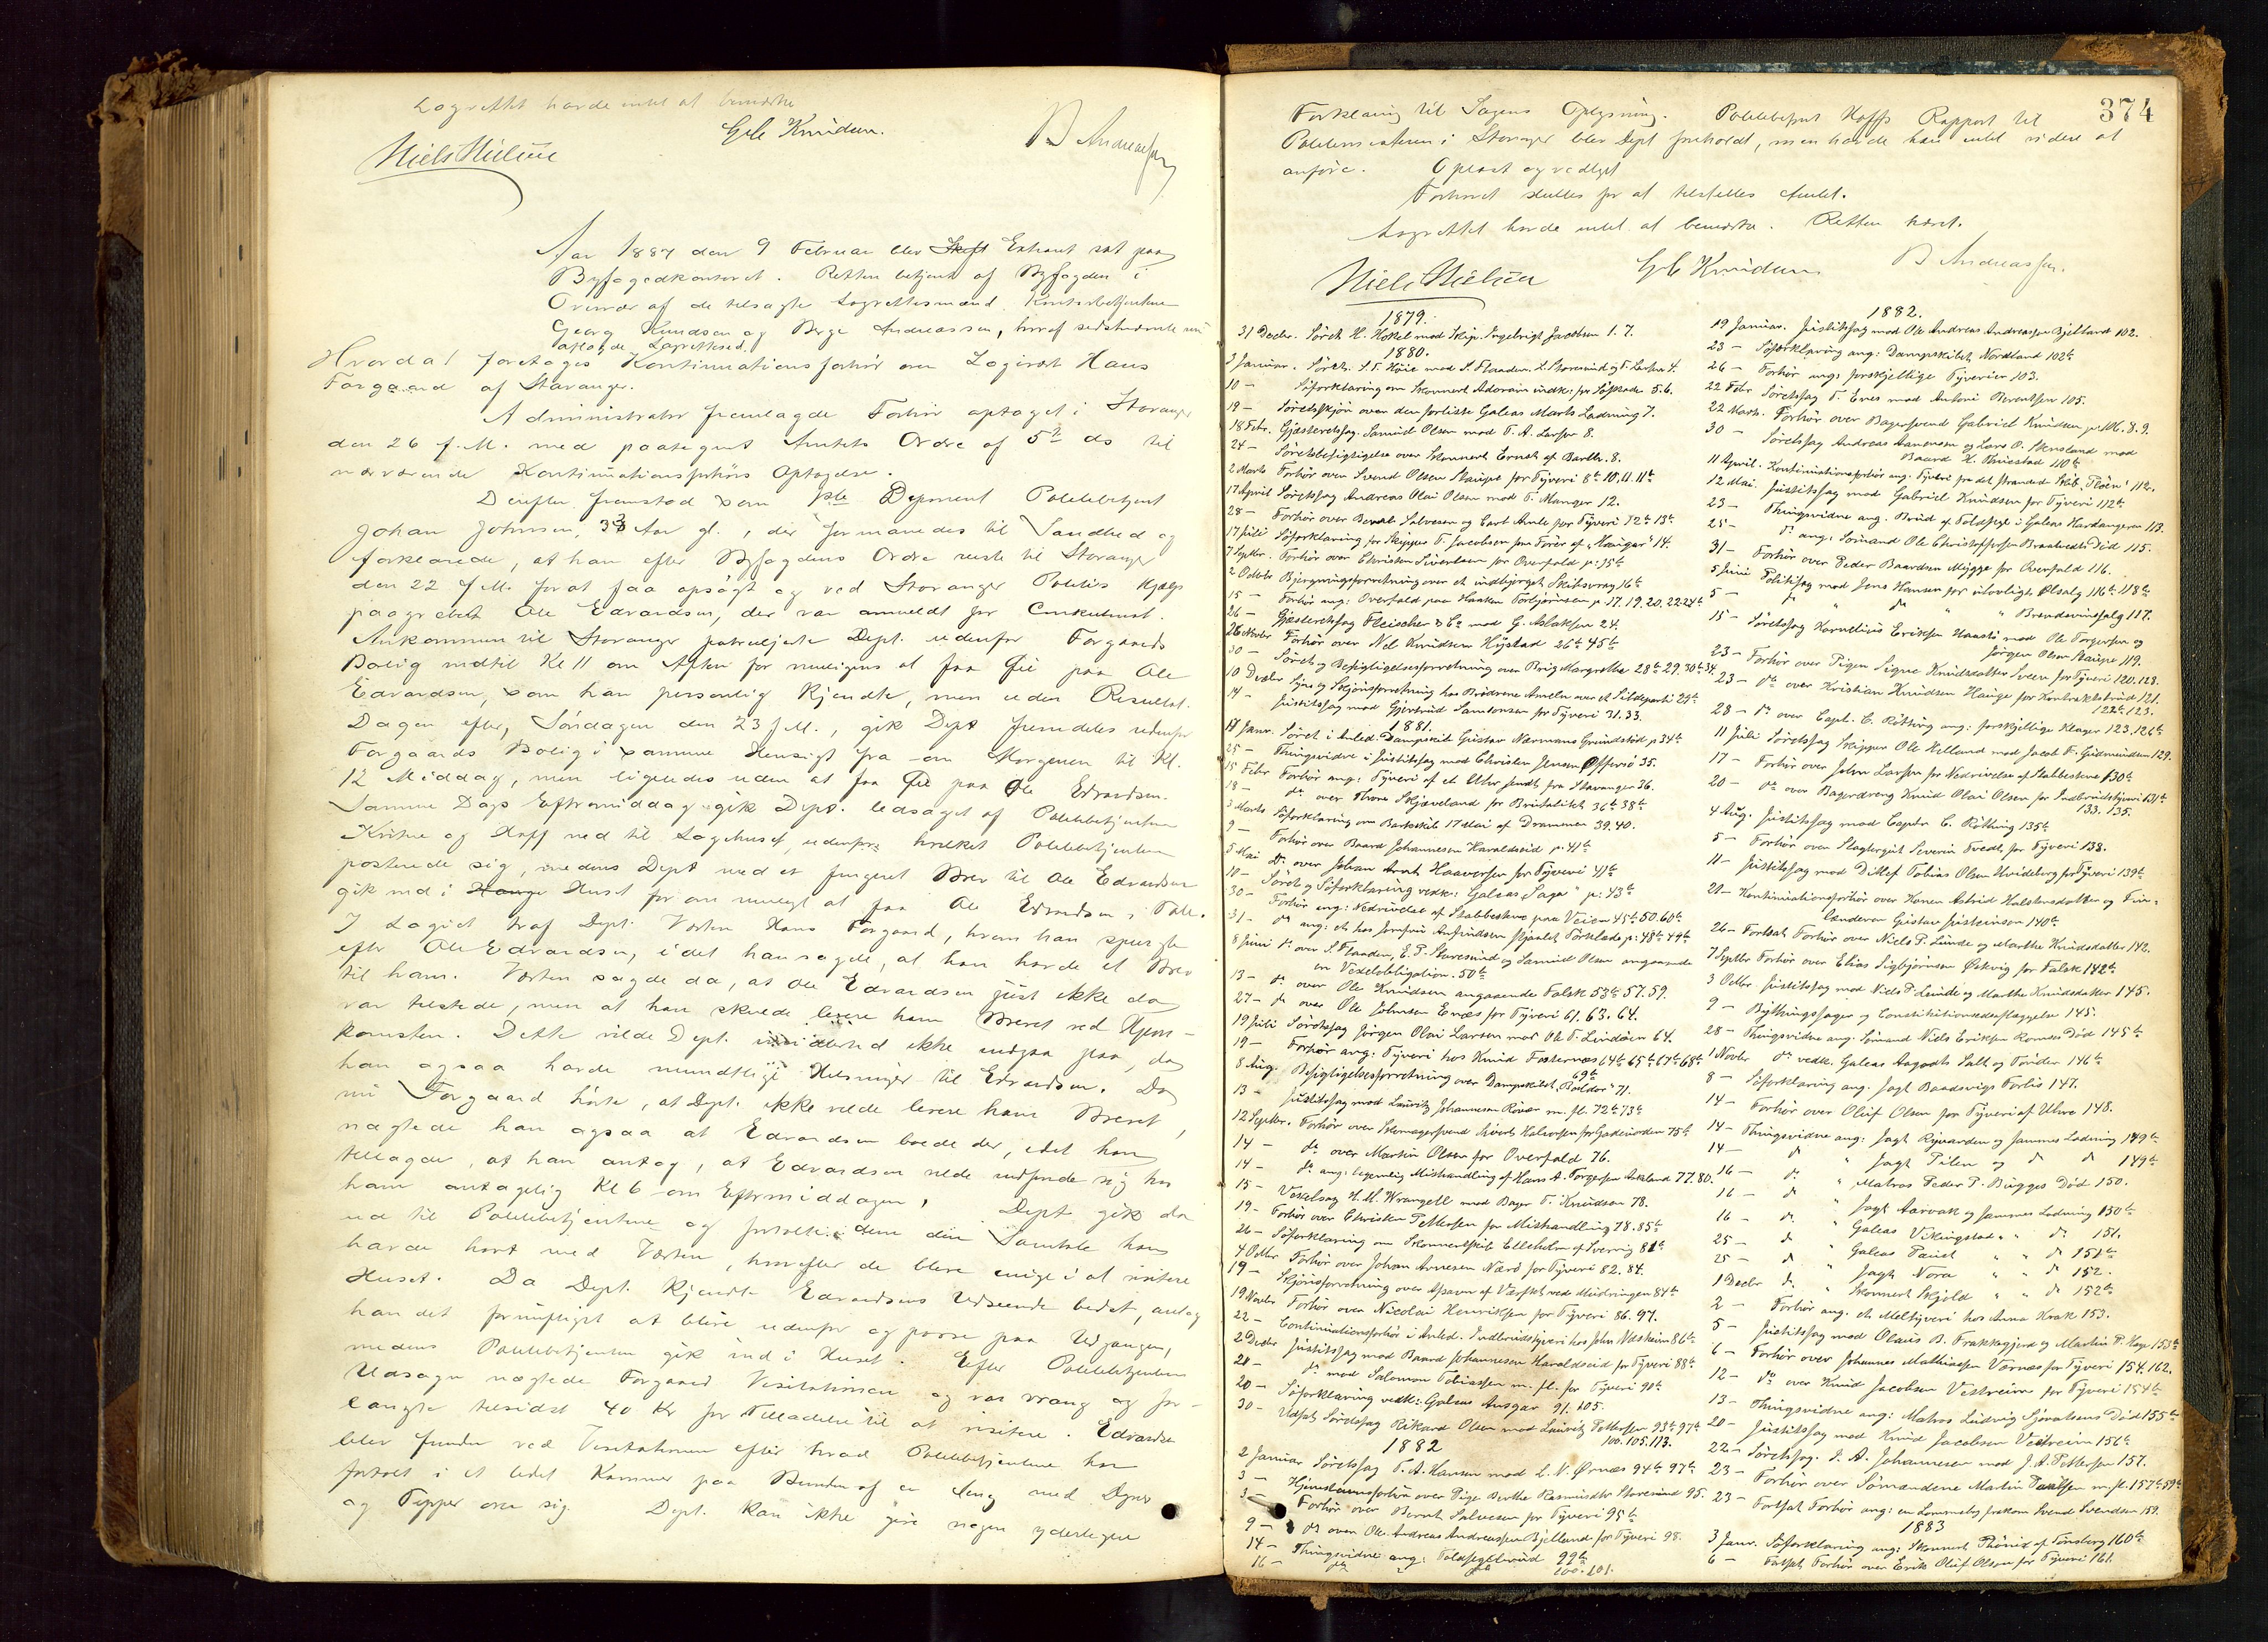 Lagrettet havde intet at bemærke
Niels Nielsen Gek Knudsen. B Andreassen
Aar 1887 den 9 Februar blev Extraret sat paa
Byfogedkontoret. Retten betjent af Byfogden i
Overvær af de tilsagte Lagrettesmænd Kontorbetjentene
Georg Knudsen og Berge Andreassen, hvoraf sidstnævnte nu
aflagde Lagrettesed.
Hvorda! foretoges Kontinuationsforhør over Logivært Hans
Torgaard af Stavanger.
Administrator fremlagde Forhør optaget i Stavanger
den 26 f. M. med paategnet Amtets Ordre af 5te ds til
nærværende Kontinuationsforhørs Optagelse.
Derefter fremstod som 1ste Deponent Politibetjent
Johan Johnsen, 33 Aar gl., der formanedes til Sandhed og
forklarede, at han efter Byfogdens Ordre reiste til Stavanger
den 22 f. M. for at faa opsøgt og ved Stavanger Politis Hjælp
paagrebet Ole Edvardsen, der var anmeldt for
Ankommen til Stavanger patruljerte Dept. udenfor Torgaards
Bolig indtil Kl 11 om Aften for muligens at faa Øie paa Ole
Edvardsen, som han personlig kjendte, men uden Resultat.
Dagen efter, Søndagen den 23 f. M., gik Dept fremdeles udenfor
Torgaards Bolig i samme Hensigt fra om Morgenen til Kl.
12 Middag, men ligeledes uden at faa Øie paa Ole Edvardsen.
Samme Dags Eftermiddag gik Dept. ledsaget af Politibetjentene
og Hoff ned til Logihuset, udenfor hvilket Politibetjentene
posterede sig, medens Dept med et fingeret Brev til Ole Edvardsen
gik ind i Huset for om muligt at faa Ole Edvardsen i Tale.
I Logiet traf Dept. Værten Hans Torgaard, hvem han spurgte
efter Ole Edvardsen, idet han sagde, at han havde et Brev
til ham. Værten sagde da, at Ole Edvardsen just ikke da
var tilstede, men at han skulde levere ham Brevet ved Hjem-
komsten. Dette vilde Dept. imidlertid ikke indgaa paa, da
han ogsaa havde mundtlige Hilsninger til Edvardsen. Da
nu Torgaard hørte, at Dept. ikke vilde levere ham Brevet,
nægtede han ogsaa at Edvardsen boede der, idet han
tillagde, at han antog, at Edvardsen vilde indfinde sig hos
ham antagelig Kl 6 om Eftermiddagen. Dept gik da
ud til Politibetjentene og fortalte dem den Samtale han
havde havt med Værten, hvorefter de bleve enige i at visitere
Huset. Da Dept. kjendte Edvardsens Udseende bedst, antog
han det fornuftigst at blive udenfor og passe paa Udgangen,
medens Politibetjentene gik ind i Huset. Efter Politibetjentenes
Udsagn nægtede Torgaard Visitationen og var vrang og for-
langte tilsidst 40 Kr for Tilladelse til at visitere. Edvardsen
blev funden ved Visitationen efter hvad Politibetjentene har
fortalt i et lidet Kammer paa Bunden af en Seng med Dyner
og Tepper over sig. Dept. kan ikke give nogen yderligere
374
Forklaring til Sagens Oplysning. Politibetjent Hoffs Rapport til
Politimesteren i Stavanger blev Dept foreholdt, men havde han intet videre at
anføre. Oplæst og vedtaget
Forhøret sluttes for at tilstilles Amtet.
Lagrettet havde intet at bemærke. Retten hævet.
Niels Nielsen Gek Knudsen B Andreassen.
1879.
31 Decbr. Søret H. Hokel mod Skip. Ingebrigt Jacobsen 1. 7.
1880.
3 Januar. Søretss. S. T. Huie mod S. Flaaden, L. Storesund og T. Larsen 4.
10 - Søforklaring om Skonnert Adorain indk. for Søskade 5.6.
19 - Søretsskjøn over den forliste Galeas Marts Ladning 7.
18 Febr. Gjæsteretssag. Samuel Olsen mod T. A. Larsen 8.
24 - Søretsbesigtigelse over Skonnert Ernst af Barth. 8.
2 Marts Forhør over Svend Olsen Staupe for Tyveri 8b 10. 11. 11b
17 April Søretssag Andreas Olai Olsen mod T. Manger 12.
28 - Forhør over Bernt Salvesen og Earl Amle for Tyveri 12b 13b
17 Juli Søforklaring for Skipper T. Jacobsen som Fører af "Haugar" 14.
7 Septbr. Forhør over Christen Siverdsen for Overfald p. 15b
2 Octbr Bjergningsforretning over et indbjerget Skibsvrag 16b
15 - Forhør ang: Overfald paa Haaken Torbjørnsen p 17. 19. 20. 22. 24b
26 - Gjæsteretssag Fleischer & Co mod G. Aslaksen 24.
26 Novbr Forhør over Nel Knudsen Hystad 26b 45b
30 - Søret og Besigtigelsesforretning over Brig Margrethe 28b 29. 30b 34.
10 Decbr Syns og Skjønsforretning hos Brødrene Amlie over et Sildeparti 29b
14 - Justitssag mod Gjertrud Samsonsen for Tyveri 31. 33.
1881.
17 Janr. Søret i Anled. Dampskib Gustav Nærmans Grundstød p 34b
25 - Thingsvidne i Justitssag mod Christen Jensen Offersø 35.
15 Febr Forhør ang: Tyveri af et Uhr sendt fra Stavanger 36.
18 - do over Thora Skjæveland for Brutalitet 36b 38b
3 Marts Søforklaring om Barkskib 17 Mai af Drammen 39. 40.
9 - Forhør over Baard Johannesen Haraldseid p. 41b
5 Mai do over Johan Arnt Haaversen for Tyveri 41b
18 - Søret og Søforklaring vedk: Galeas "Saga" p. 43b
30 - Forhør ang: Nedrivelse af Stabbestene paa Veien 45b 50. 60b
31 - do ang: et hos Josefine Anfindsen stjaalet Tørklæde p. 48b 49b
8 Juni do over S. Flaaden, E. P. Storesund og Samuel Olsen angaaende
en Vexelobligation. 50b
13 - do over Ole Knudsen angaaende Falsk 53b 57. 59.
27 - do over Ole Johnsen Enæs for Tyveri 61. 63. 64.
19 Juli Søretssag Jørgen Olai Larsen mod Ole T. Lindøen 64.
19 - Forhør ang: Tyveri hos Knud Fosternæs 64b 65b 67b 68b
69b
8 Aug. Besigtigelsesforretning over Dampskibet "Baldor" 71.
13 - Justitssag mod Lauritz Johannesen Røvær m. fl. 72b 73b
12 Septbr. Forhør over Skomagersvend Sivert Halvorsen for Gadeuorden 75b
14 - do over Martin Olsen for Overfald 76.
14 - do ang: legemlig Mishandling af Hans A. Torgersen Aakland 77. 80.
15 - Vexelsag H. M. Wrangell mod Bager T. Knudsen 78.
19 - Forhør over Christen Pettersen for Mishandling 78. 85b
26 - Søforklaring om Skonnertskib Elleholm af Sverrig 81b
4 Octbr Forhør over Johan Arnesen Nærø for Tyveri 82. 84.
19 - Skjønsforretning over Afsavn af Værftet ved Mudringen 84b
19 Novbr Forhør over Nicolai Henriksen for Tyveri 86. 97.
22 - Continuationsforhør i Anled. Indbrudstyveri hos John Næsheim 86b
2 Decbr Justitssag mod Baard Johannesen Haraldseid for Tyveri 88b
20 - do mod Salomon Tobiassen m. fl. for Tyveri 90b
20 - Søforklaring vedk: Galeas Ansgar 91. 105.
30 - Udsat Søretssag Rikard Olsen mod Lauritz Pettersen 93b 97b
100. 105. 113.
1882
2 Januar Søretssag T. A. Hansen mod L. N. Ørnæs 94b 97b
3 - Hjemstavnsforhør over Pige Berthe Rasmusdtr Storesund 95.
3 - Forhør over Bernt Salvesen for Tyveri 95b
9 - do over Ole Andreas Andreassen Bjelland for Tyveri 98.
14 - Thingsvidne ang: Toldsegelbrud 99b
16 - do do 100. 101.
1882.
19 Januar. Justitssag mod Ole Andreas Andreassen Bjelland 102.
23 - Søforklaring ang: Dampskibet Nordland 102b
26 - Forhør ang: forskjellige Tyverier 103.
22 Febr Søretssag T. Enes mod Antoni Berentsen 105.
22 Marts. Forhør over Bagersvend Gabriel Knudsen p. 106. 8. 9.
30 - Søretssag Andreas Aanensen og Lars O. Stensland mod
Baard H. Buestad 110b
11 April. Kontinuationsforhør ang. Tyveri fra det strandede Skib "Floen" 112.
12 Mai. Justitssag mod Gabriel Knudsen for Tyveri 112b
23 - Thingsvidne ang. Brud af Toldsegl i Galeas Hardangeren 113.
25 - do ang: Sømand Ole Christoffersen Braatvedts Død 115.
31 - Forhør over Peder Baardsen Mygge for Overfald 116.
5 Juni Politisag mod Jens Hansen for ulovligt Ølsalg 116b 118b
5 - do " do " " Brændevinssalg 117.
15 - Søretssag Kornelius Eriksen Haastø mod Ole Torgersen og
Jørgen Olsen Staupe 119.
23 - Forhør over Pigen Signe Knudsdatter Sveen for Tyveri 120. 128.
23 - do over Kristian Knudsen Hauge for Kontraktsbrud 121.
122b 123.
28 - do over Capt. C. Røtting ang: forskjellige Klager 123. 126b
11 Juli Søretssag Skipper Ole Helland mod Jacob F. Gudmundsen 129.
17 - Forhør over John Larsen for Nedrivelse af Stabbestene 130b
20 - do over Bagerdreng Knud Olai Olsen for Indbrudstyveri 131b
133. 135.
4 Aug. Justitssag mod Captn C. Røtting 135b
5 - Forhør over Slagtergut Severin Tvedt, for Tyveri 138.
11 - Justitssag mod Ditlef Tobias Olsen Hvideberg for Tyveri 139b
21 - Kontinuationsforhør over Konen Astrid Halstensdatter og Fin-
lænderen Gustav Justeinson 140b
26 - Fortsat Forhør over Niels P. Lunde og Marthe Knudsdatter 142.
7 Septbr Forhør over Elias Sigbjørnsen Økvig for Falsk 142b
3 Octbr Justitssag mod Niels P. Lunde og Marthe Knudsdatter 145.
9 - Bythingssager og Constitutionsedsaflæggelse 145.
28 - Thingsvidne ang. Sømand Niels Eriksen Romsø Død 145b
1 Novbr do vedk. Galeas Aagodts Salt og Tønder 146b
8 - Søforklaring ang. Jagt Baadsvigs Forlis 147.
14 - Forhør over Oluf Olsen for Tyveri af Uhre 148.
14 - Thingsvidne ang: Jagt Ryvarden og sammes Ladning 149b
14 - do " Jagt Pilen og do do 149b
16 - do " Matros Peder P. Bugges Død 150.
16 - do " Jagt Aarvak og sammes Ladning 150b
16 - do " Galeas Vikingstad " " do 151.
25 - do " Galeas Paul " " do 151b
25 - do " Jagt Nora " " do 152.
1 Decbr do " Skonnert Skjold " " do 152b
2 - Forhør ang. et Meltyveri hos Anna Krak 153.
5 - Justitssag mod Olaus B. Frakkagjerd og Martin P. Haga 153b
6 - Forhør over Johannes Mathiassen Værnæs for Tyveri 154. 162.
12 - do over Knud Jacobsen Vestreim for Tyveri 154b
13 - Thingsvidne ang: Matros Ludvig Sjovatsens Død 155b
20 - Justitssag mod Knud Jacobsen Vestreim 156b
22 - Søretssag. J. A. Johannesen mod J. A. Pettersen 157.
23 - Forhør over Sømændene Martin Paulsen m. fl. 157b 59b
23 - Fortsat Forhør ang: en Lommebog frakom Svend Svendsen 159.
1883
3 Janr. Søforklaring ang: Skonnert Phønix af Tønsberg 160b
6 - Fortsat Forhør over Erik Oluf Olsen for Tyveri 161.